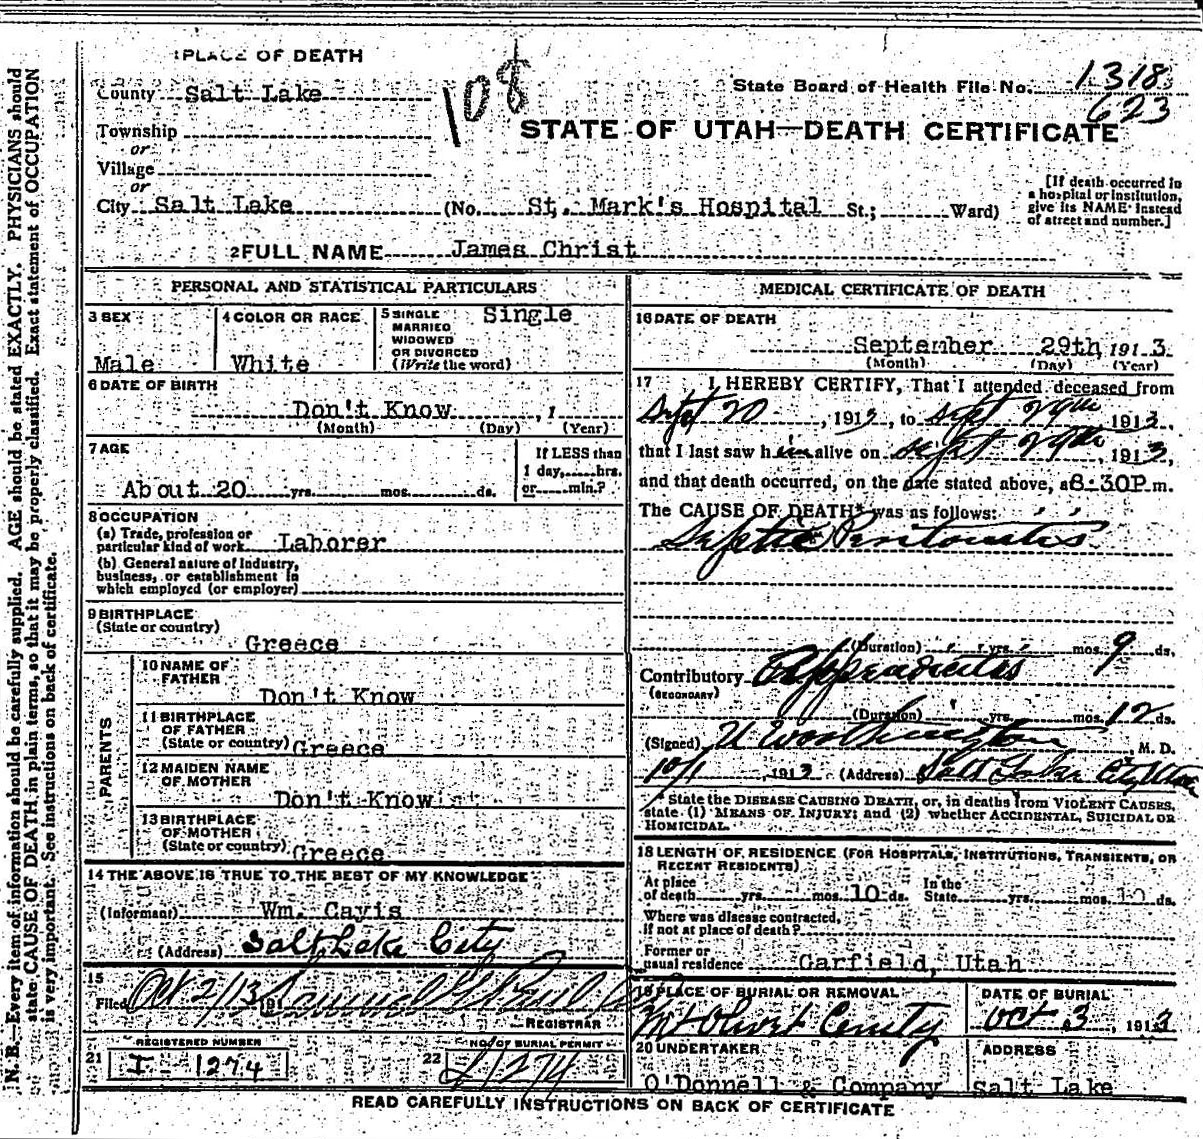 1 PLACE OF DEATH
County Salt Lake
108
State Board of Health File No. 1318
623
Township
or
Village
or
City Salt Lake (No. St. Mark's Hospital St.; Ward)
STATE OF UTAH—DEATH CERTIFICATE
[If death occurred in
a hospital or institution,
give its NAME instead
of street and number.]
2 FULL NAME James Christ
PERSONAL AND STATISTICAL PARTICULARS
3 SEX
Male
4 COLOR OR RACE
White
5 SINGLE
MARRIED
WIDOWED
OR DIVORCED
(Write the word)
Single
6 DATE OF BIRTH
Don't Know , 1
(Month) (Day) (Year)
7 AGE
About 20 yrs. mos. ds.
If LESS than
1 day, hrs.
or min.?
8 OCCUPATION
(a) Trade, profession or
particular kind of work Laborer
(b) General nature of Industry,
business, or establishment in
which employed (or employer)
9 BIRTHPLACE
(State or country)
Greece
PARENTS
10 NAME OF
FATHER
Don't Know
11 BIRTHPLACE
OF FATHER
(State or country) Greece
12 MAIDEN NAME
OF MOTHER
Don't Know
13 BIRTHPLACE
OF MOTHER
(State or country) Greece
14 THE ABOVE IS TRUE TO THE BEST OF MY KNOWLEDGE
(Informant) Wm. Cavis
(Address) Salt Lake City
15
Filed Oct 2/13 191
REGISTRAR
REGISTERED NUMBER
21 I 1274
NO. OF BURIAL PERMIT
22 1274
MEDICAL CERTIFICATE OF DEATH
16 DATE OF DEATH
September 29th, 1913
(Month) (Day) (Year)
17 I HEREBY CERTIFY, That I attended deceased from
Sept 20, 1913, to Sept 29th 1913,
that I last saw him alive on Sept 29th, 1913,
and that death occurred, on the date stated above, at 8-30P.m.
The CAUSE OF DEATH* was as follows:
Septic Peritonitis
(Duration) yrs. mos. 9 ds.
Contributory Appendicitis
(SECONDARY)
(Duration) yrs. mos. 12 ds.
(Signed) U Worthington, M. D.
10/1, 1913 (Address) Salt Lake City Utah
* State the DISEASE CAUSING DEATH, or, in deaths from VIOLENT CAUSES,
state (1) MEANS OF INJURY; and (2) whether ACCIDENTAL, SUICIDAL OR
HOMICIDAL.
18 LENGTH OF RESIDENCE (FOR HOSPITALS, INSTITUTIONS, TRANSIENTS, OR
RECENT RESIDENTS)
At place
of death yrs. mos. 10 ds.
In the
State yrs. mos. 10 ds.
Where was disease contracted,
If not at place of death?
Former or
usual residence Garfield, Utah
19 PLACE OF BURIAL OR REMOVAL
Mt Olivet Cemetery
DATE OF BURIAL
Oct 3, 1913
20 UNDERTAKER
O'Donnell & Company
ADDRESS
Salt Lake
READ CAREFULLY INSTRUCTIONS ON BACK OF CERTIFICATE
N. B.—Every item of information should be carefully supplied. AGE should be stated EXACTLY. PHYSICIANS should
state CAUSE OF DEATH in plain terms, so that it may be properly classified. Exact statement of OCCUPATION
is very important. See instructions on back of certificate.